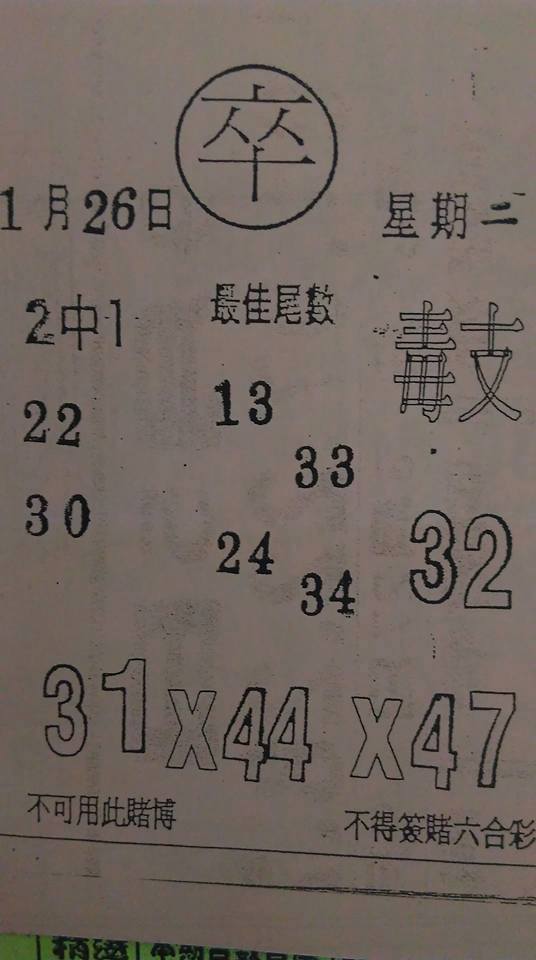 卒
1月26日 星期二
2中1 最佳尾數 毒支
22 13
33
30 24 32
34
31X44X47
不可用此賭博 不得簽賭六合彩